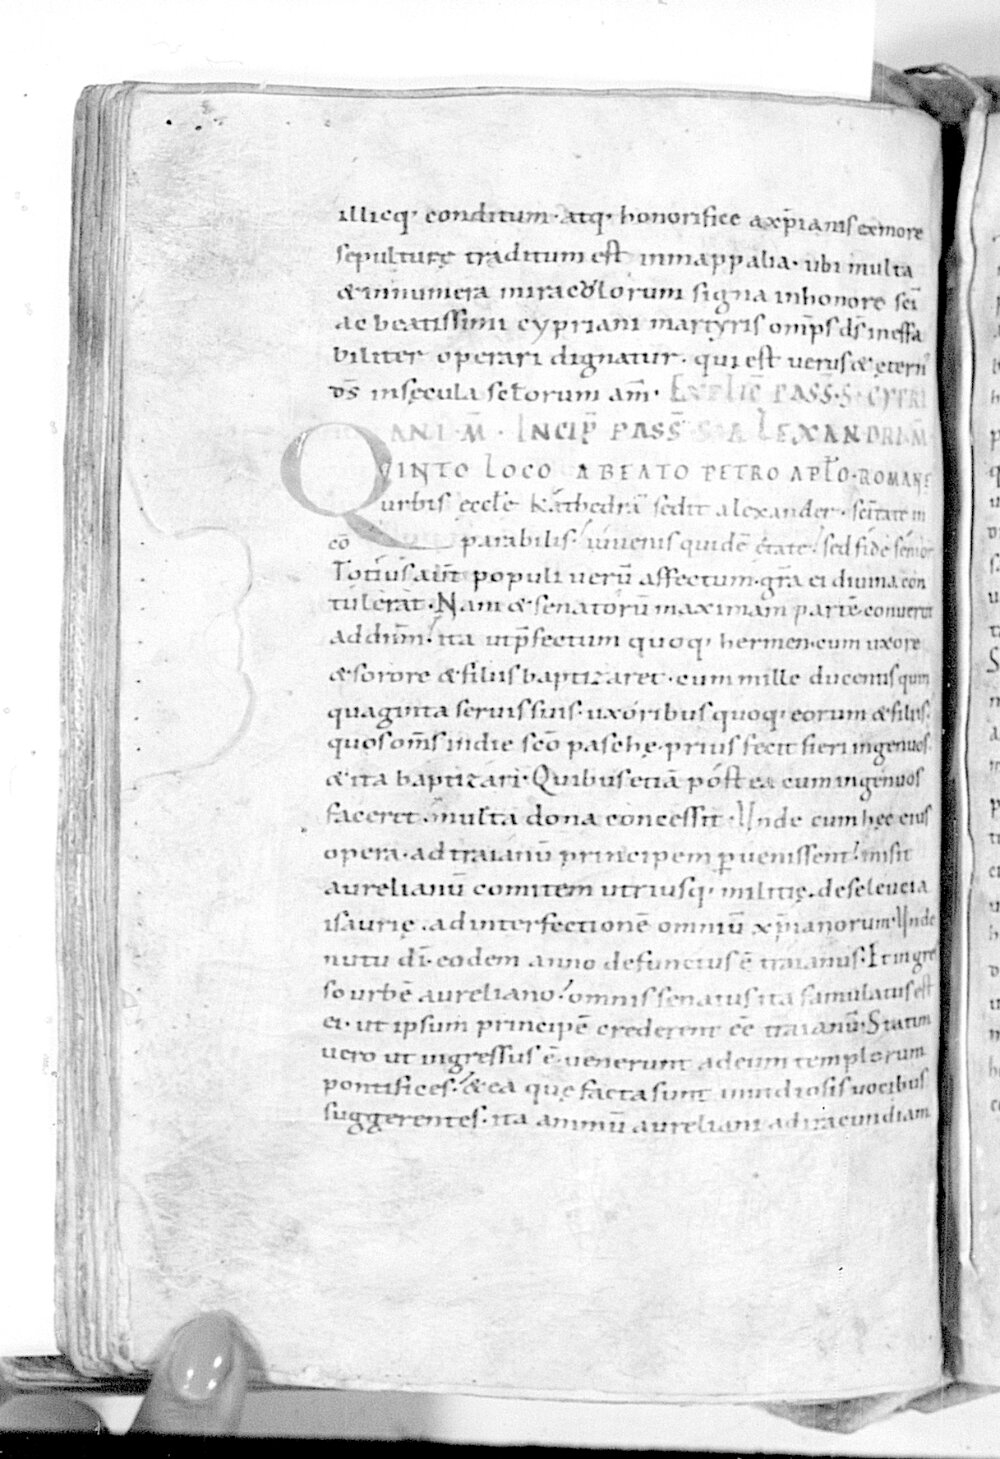 illicq; conditum · atq; honorifice a xp̄ianis ex more
sepulturę traditum est in mappalia · ubi multa
& innumera miraculorum signa in honore sc̄i
ac beatissimi cypriani martyris omp̄s ds̄ ineffa
biliter operari dignatur · qui est uerus & ętern᾽
ds̄ in sęcula sc̄lorum am̄ · EXPLIC̄ PASS̄ · S · CYPRI
ANI · M̄ · INCIP̄ PASS̄ S · ALEXANDRI · M̄
QVINTO LOCO A BEATO PETRO APL̄O · ROMANE
urbis ęccl̄e kathedrā sedit alexander · sc̄itate in
cō parabilis · iuuenis quidē ętate · sed fide senior
Totius aut̄ populi uerū affectum · gr̄a ei diuina con
tulerat · Nam & senatorū maximam partē conuertit
ad dn̄m · ita ut p̄fectum quoq; hermen · cum uxore
& sorore & filiis baptizaret · cum mille ducentis quin
quaginta seruis suis · uxoribus quoq; eorum & filiis ·
quos om̄s in die sc̄o paschę · prius fecit fieri ingenuos ·
& ita baptizari · Quibus etiā postea cum ingenuos
faceret · multa dona concessit · Unde cum hęc eius
opera · ad traianū principem ꝑuenissent · misit
aurelianū comitem utriusq; militię · de seleucia
isaurię · ad interfectionē omniū xp̄ianorum · Unde
nutu dī · eodem anno defunctus ē traianus · Et ingres
so urbē aureliano · omnis senatus ita famulatus est
ei · ut ipsum principē crederent eē traianū · Statim
uero ut ingressus ē uenerunt ad eum templorum
pontifices · & ea quę facta sunt inuidiosis uocibus
suggerentes · ita animū aureliani ad iracundiam